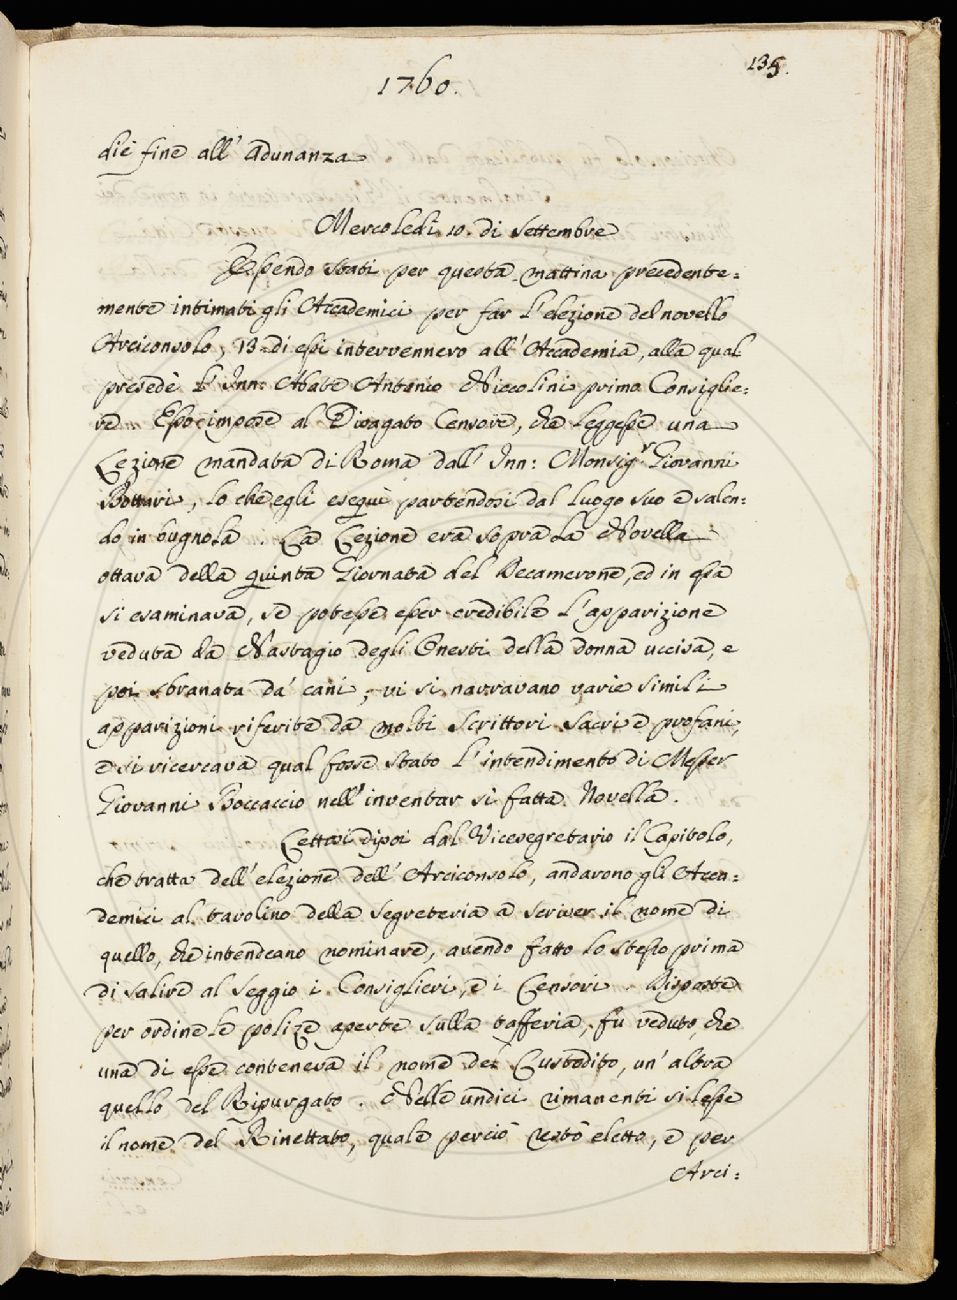 135.
1760.
diè fine all' Adunanza
Mercoledì 10. di Settembre
Essendo stati per questa mattina precedente=
mente intimati gli Accademici per far l'elezione del novello
Arciconsolo, 13. di essi intervennero all'Accademia, alla qual
presedè l'Inn: Abate Antonio Niccolini primo Consiglie=
re. Esso impose al Divagato Censore, che leggesse una
Lezione mandata di Roma dall' Inn: Monsig.r Giovanni
Bottari, lo che egli eseguì partendosi dal luogo suo e salen=
do in bugnola. La Lezione era sopra la Novella
ottava della quinta Giornata del Decamerone, ed in essa
si esaminava, se potesse esser credibile l'apparizione
veduta da Nastagio degli Onesti della donna uccisa, e
poi sbranata da' cani; vi si narravano varie simili
apparizioni riferite da molti Scrittori sacri e profani,
e si ricercava qual fosse stato l'intendimento di Messer
Giovanni Boccaccio nell'inventar sì fatta Novella.
Lettosi dipoi dal Vicesegretario il Capitolo,
che tratta dell'elezione dell'Arciconsolo, andarono gli Acca=
demici al tavolino della Segreteria a scriver il nome di
quello, che intendeano nominare, avendo fatto lo stesso prima
di salire al Seggio i Consiglieri, e i Censori. Disposte
per ordine le polize aperte sulla tafferia, fu veduto, che
una di esse conteneva il nome del Custodito, un' altra
quello del Ripurgato. Nelle undici rimanenti si lesse
il nome del Rinettato, quale perciò restò eletto, e per
Arci=